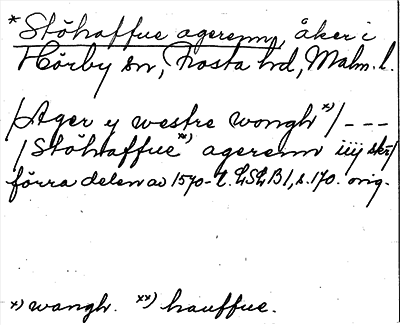 * Stöhaffue agerenn, åker i
Hörby sn, Frosta hd, Malm. l.
/Ager y westre wongh x)/ ---
/Stöhaffue xx) agerenn iiij skr/
förra delen av 1570-t. LSLB1, s. 170. orig.
x) wangh. xx) hauffue.